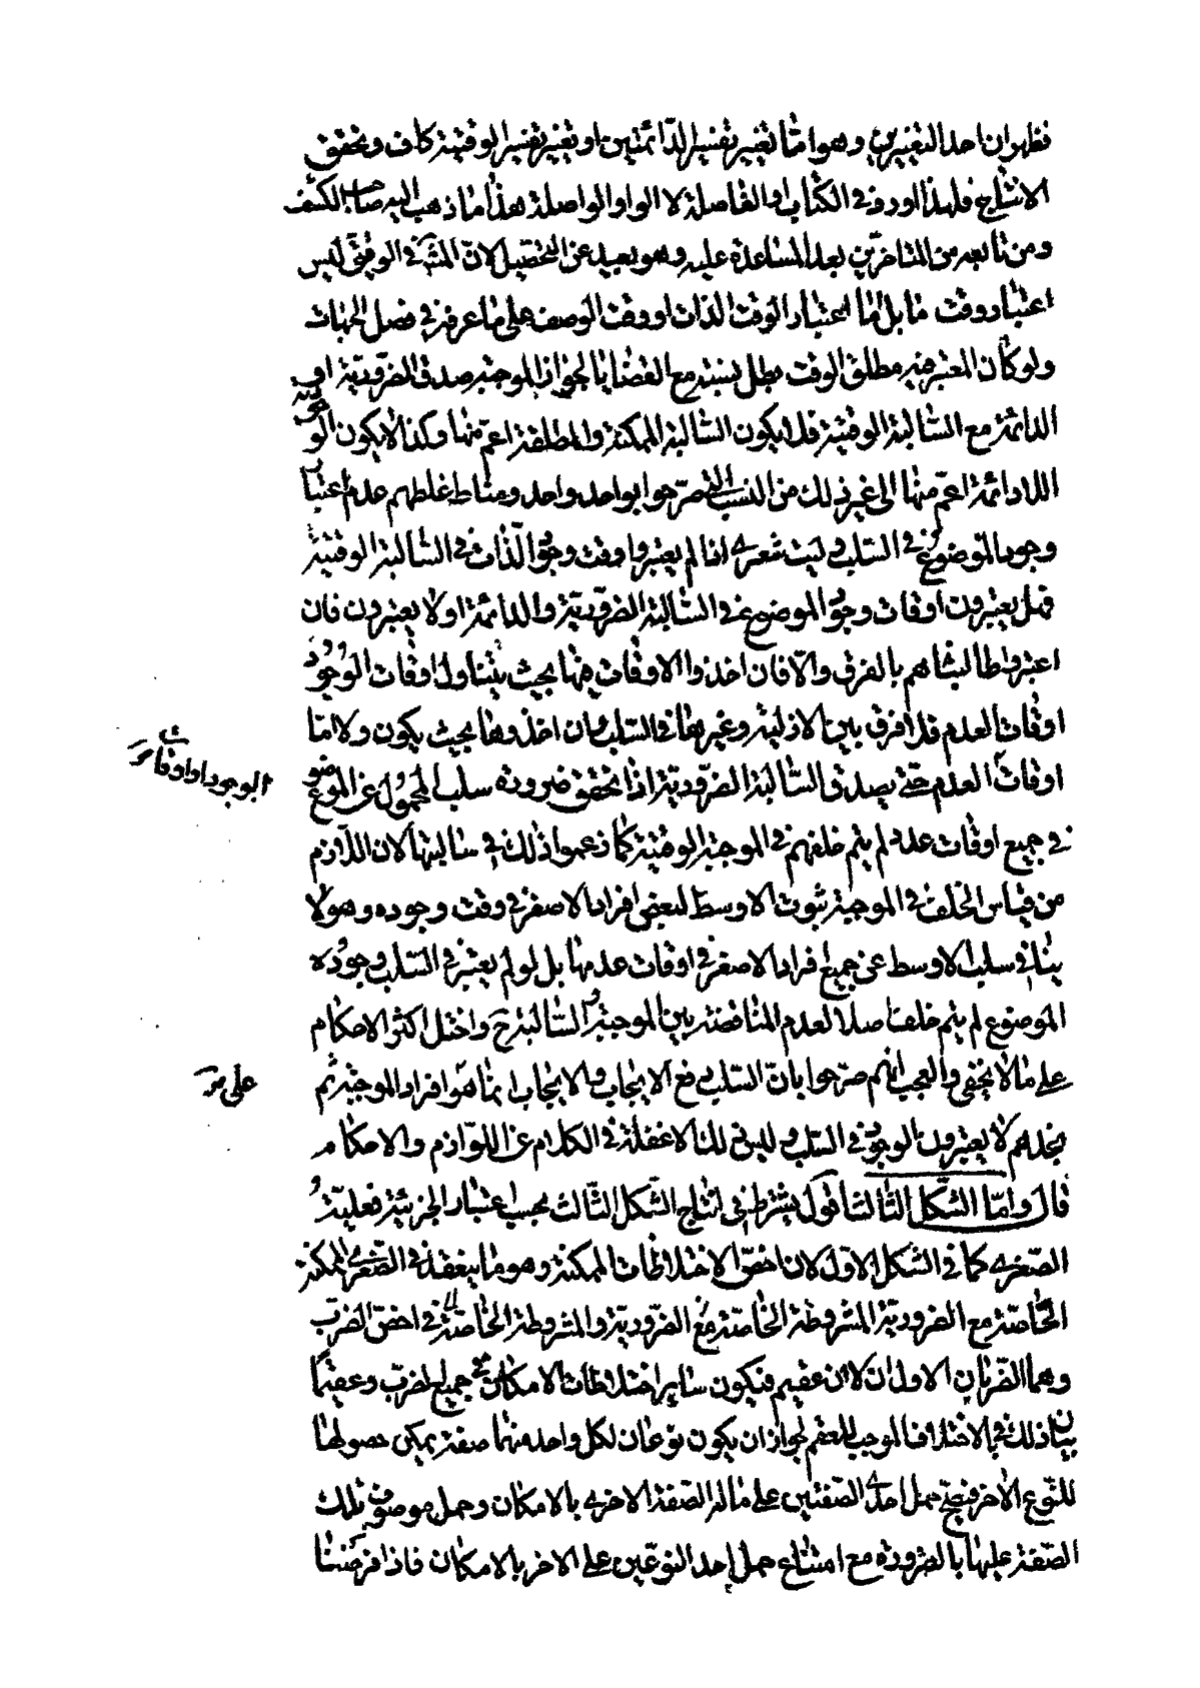 فظهر ان احد التغييرين وهو امّا تغيير تفسير الدّائمتين او تغيير تفسير الوقتية كاف فى تحقق
الانتاج فلهذا اورد فى الكتاب او الفاصلة لا الواو الواصلة هذا ما ذهب اليه صاحب الكشف
ومن تابعه من المتاخرين بعد المساعدة عليه وهو بعيد عن التحصيل لانّ المعتبر فى الوقتى ليس
اعتبار وقت ما بل امّا اعتبار الوقت الذات او وقت الوصف على ما عرفته فى فصل الجهات
ولو كان المعتبر فيه مطلق الوقت بطل نسبته مع القضايا لجواز الموجبة صدق الضرورية او
الدائمة مع السّالبة الوقتية فلا يكون السّالبة الممكنة والمطلقة اعمّ منها وكذا لا يكون الوجودية
اللادائمة اعمّ منها الى غير ذلك من النسب التى صرّحوا بواحد واحد ومناط غلطهم عدم اعتبار
وجود الموضوع فى السّلب وليت شعرى اذا لم يعتبروا وقت وجود الذّات فى السّالبة الوقتية
فهل يعتبرون اوقات وجود الموضوع فى السّالبة الضرورية والدائمة او لا يعتبرون فان
اعتبروا طالبناهم بالفرق والّا فان اخذوا الاوقات فيها بحيث يتناول اوقات الوجود
اوقات العدم فلا فرق بين الازلية وغيرها فى السّلب وان اخذوها بحيث يكون ولا امّا
الوجود او اوقات
اوقات العدم حتّى يصدق السّالبة الضرورية اذا تحقق ضرورة سلب المحمول عن الموضوع
فى جميع اوقات عدمه لم يتم خلفهم فى الموجبة الوقتية كما زعموا ذلك فى سالبتها لان اللّازم
من قياس الخلف فى الموجبة ثبوت الاوسط لبعض افراد الاصغر فى وقت وجوده وهو لا
ينافى سلب الاوسط عن جميع افراد الاصغر فى اوقات عدمها بل لو لم يعتبر فى السّلب وجود
الموضوع لم يتم خلف اصلا لعدم المناقضة بين الموجبة والسّالبة ح واختل اكثر الاحكام
على ما لا يخفى والعجب انّهم صرّحوا بانّ السّلب رفع الايجاب والايجاب انّما هو افراد الموجبة ثم
على
نجدهم لا يعتبرون الوجود فى السّلب وليس ذلك الا غفلة فى الكلام عن اللوازم والاحكام
قال وامّا الشكل الثالث اقول يشترط فى انتاج الشكل الثّالث بحسب اعتبار الجزئية فعليّة
الصّغرى كما فى الشكل الاول لان اخصّ الاختلاطات الممكنة وهو ما ينعقد فى الصّغرى الممكنة
الخاصّة مع الضرورية المشروطة الخاصّة مع الضرورية والمشروطة الخاصّة فى اخصّ الضرب
وهما الضّربان الاولان لان عقيم فيكون ساير اختلاطات الامكان فى جميع الضرب وعقيما
بيان ذلك فى الاختلاف الموجب للعقم لجواز ان يكون نوعان لكل واحد منهما صفة يمكن حصولها
للنّوع الاخر فيصحّ حمل احدى الصّفتين على ما له الصّفة الاخرى بالامكان وحمل موصوف بتلك
الصّفة عليها بالضرورة مع امتناع حمل احد النوعين على الاخر بالامكان فاذا فرضنا